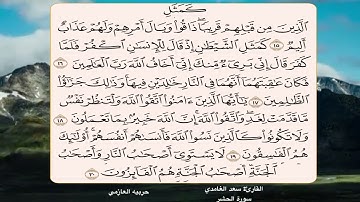 كَمَثَلِ
ٱلَّذِينَ مِن قَبۡلِهِمۡ قَرِيبٗاۖ ذَاقُواْ وَبَالَ أَمۡرِهِمۡ وَلَهُمۡ عَذَابٌ
أَلِيمٞ ١٥ كَمَثَلِ ٱلشَّيۡطَٰنِ إِذۡ قَالَ لِلۡإِنسَٰنِ ٱكۡفُرۡ فَلَمَّا
كَفَرَ قَالَ إِنِّي بَرِيٓءٞ مِّنكَ إِنِّيٓ أَخَافُ ٱللَّهَ رَبَّ ٱلۡعَٰلَمِينَ ١٦
فَكَانَ عَٰقِبَتَهُمَآ أَنَّهُمَا فِي ٱلنَّارِ خَٰلِدَيۡنِ فِيهَاۚ وَذَٰلِكَ جَزَٰٓؤُاْ
ٱلظَّٰلِمِينَ ١٧ يَٰٓأَيُّهَا ٱلَّذِينَ ءَامَنُواْ ٱتَّقُواْ ٱللَّهَ وَلۡتَنظُرۡ نَفۡسٞ
مَّا قَدَّمَتۡ لِغَدٖۖ وَٱتَّقُواْ ٱللَّهَۚ إِنَّ ٱللَّهَ خَبِيرُۢ بِمَا تَعۡمَلُونَ ١٨
وَلَا تَكُونُواْ كَٱلَّذِينَ نَسُواْ ٱللَّهَ فَأَنسَىٰهُمۡ أَنفُسَهُمۡۚ أُوْلَٰٓئِكَ
هُمُ ٱلۡفَٰسِقُونَ ١٩ لَا يَسۡتَوِيٓ أَصۡحَٰبُ ٱلنَّارِ وَأَصۡحَٰبُ
ٱلۡجَنَّةِۚ أَصۡحَٰبُ ٱلۡجَنَّةِ هُمُ ٱلۡفَآئِزُونَ ٢٠
القارئ سعد الغامدي
حربيه العازمي
سورة الحشر